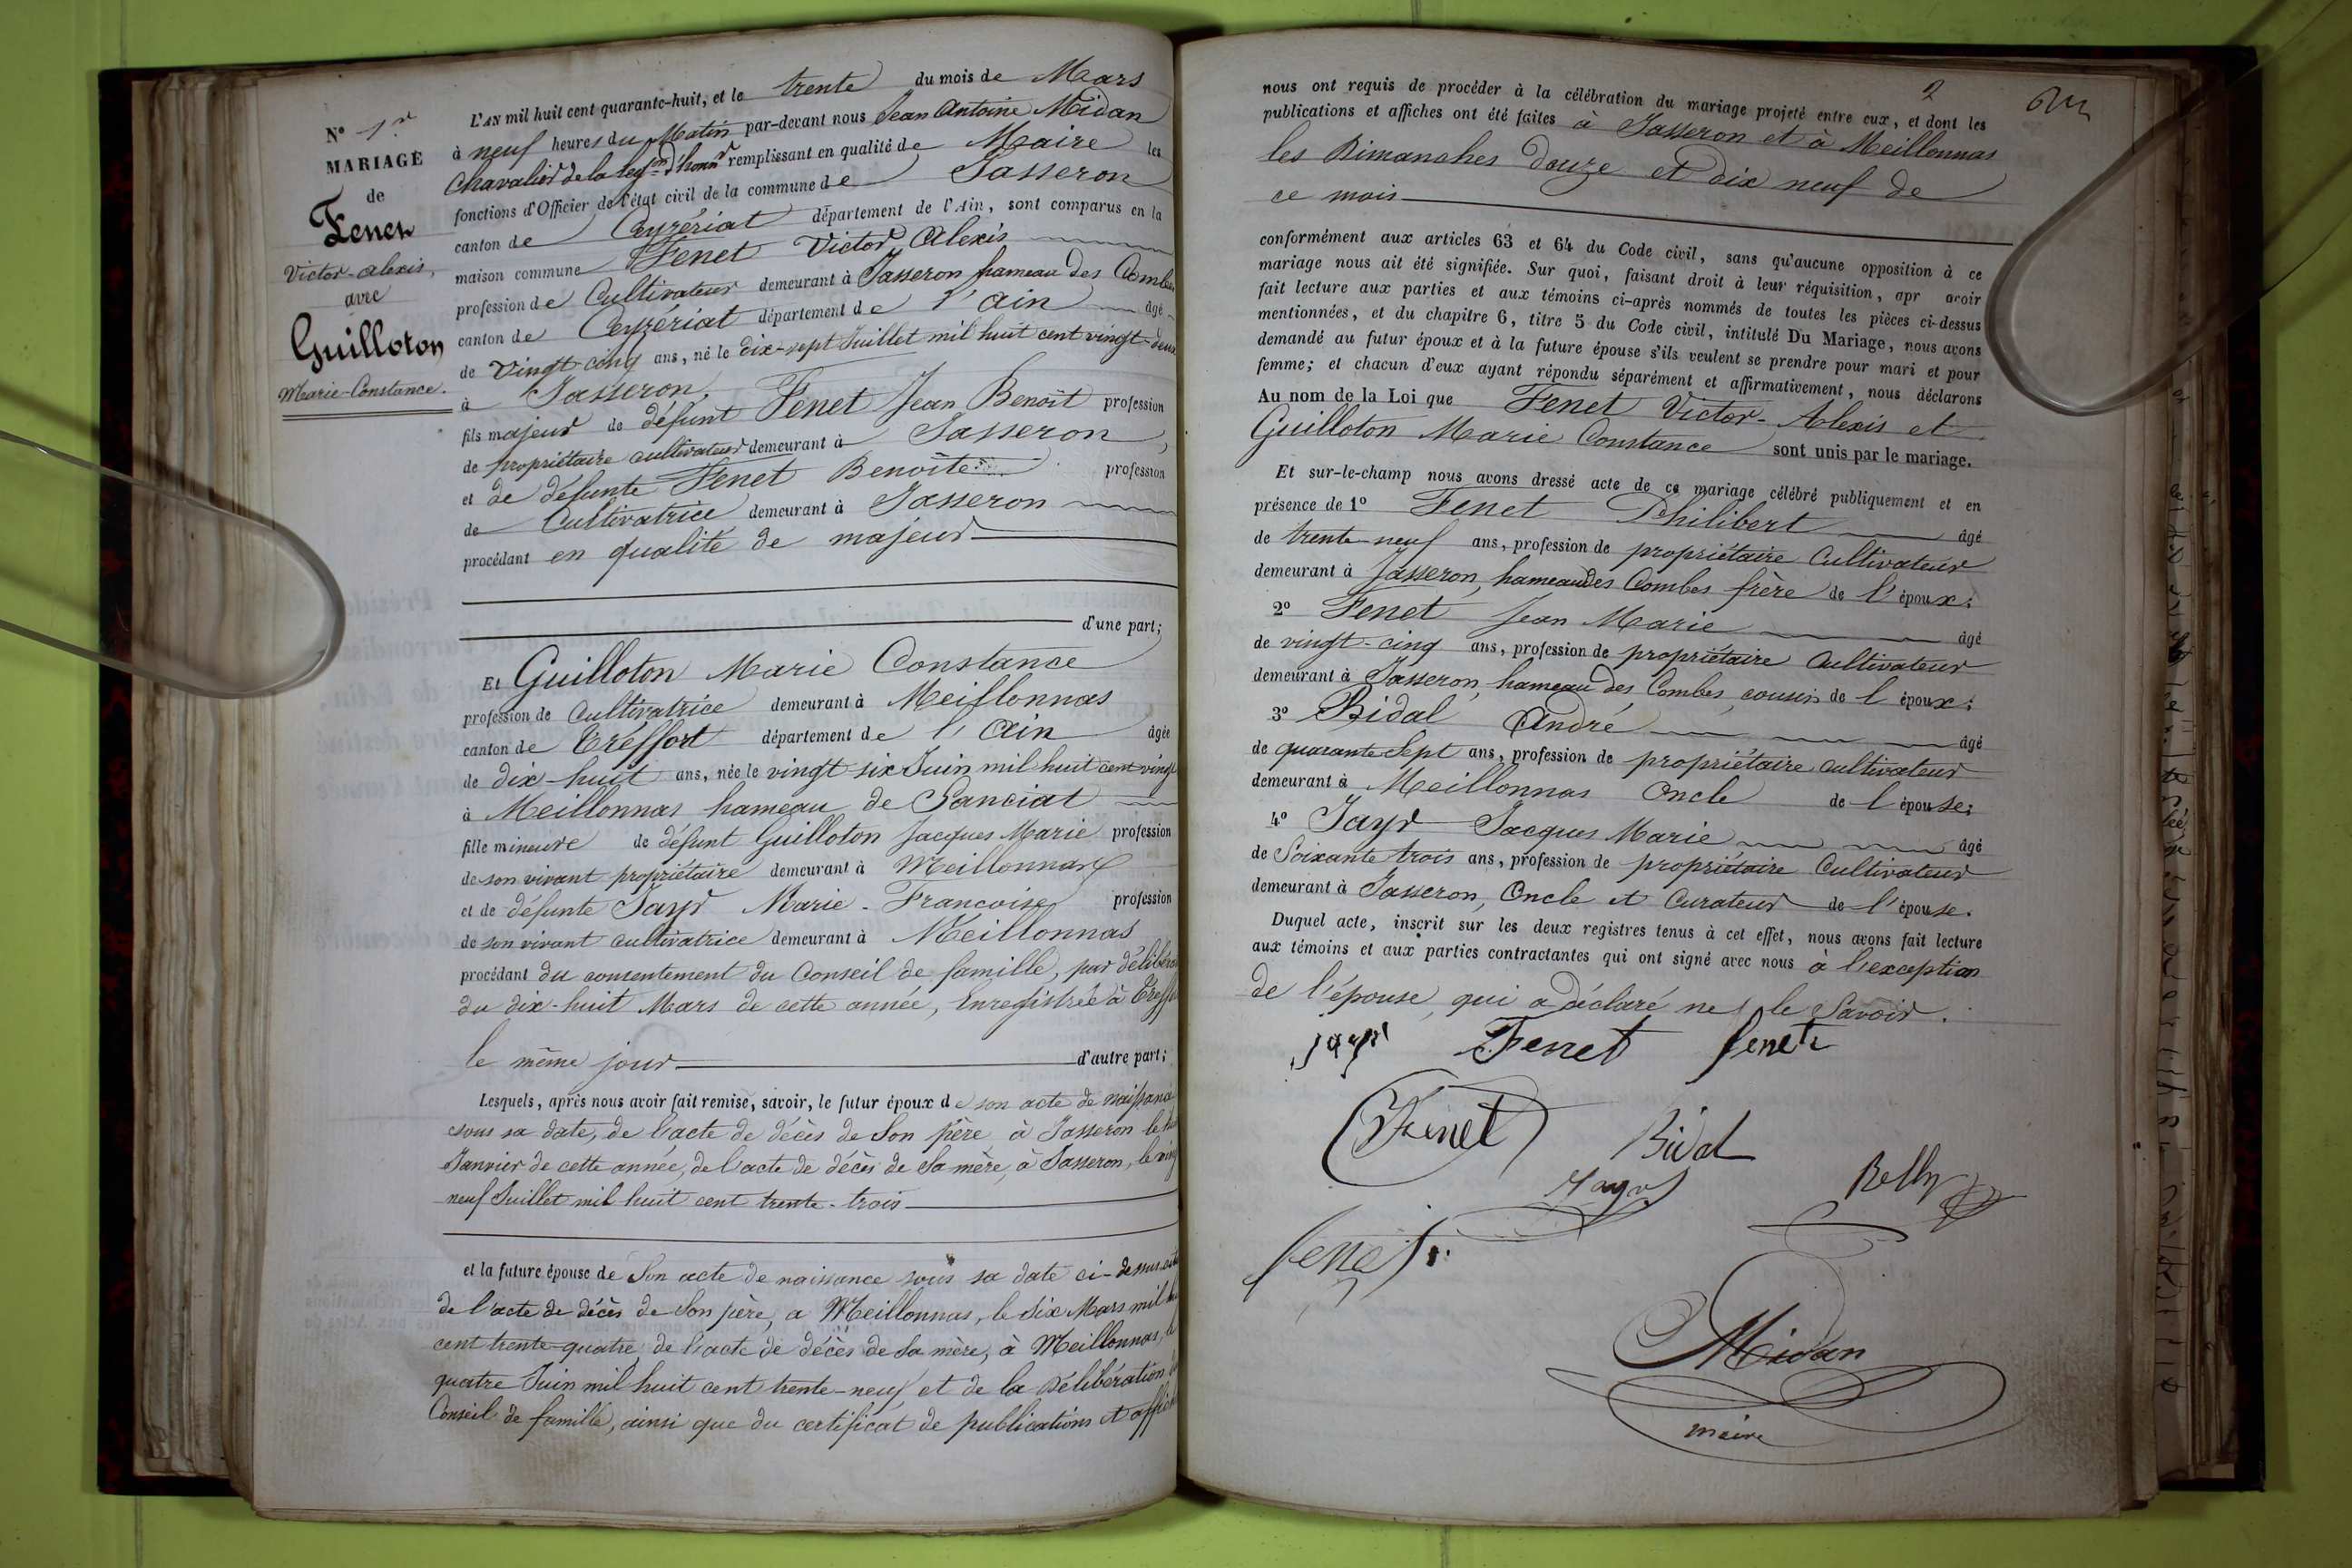 N° 1er
MARIAGE
de
Fenet
Victor-Alexis,
avec
Guilloton
Marie-Constance.
L'AN mil huit cent quarante-huit, et le trente du mois de Mars
à neuf heures du Matin par-devant nous Jean Antoine Midan
Chavalier de la légon d'honnr remplissant en qualité de Maire les
fonctions d'Officier de l'état civil de la commune de Jasseron
canton de Ceyzériat département de l'Ain, sont comparus en la
maison commune Fenet Victor Alexis
profession de Cultivateur demeurant à Jasseron hameau des Combes
canton de Ceyzériat département de l'ain âgé
de Vingt cinq ans, né le dix-sept Juillet mil huit cent vingt-deux
à Jasseron,
fils majeur de défunt Fenet Jean Benoît profession
de propriétaire cultivateur demeurant à Jasseron,
et de défunte Fenet Benoîte profession
de Cultivatrice demeurant à Jasseron
procédant en qualité de majeur
d'une part;
Et Guilloton Marie Constance
profession de Cultivatrice demeurant à Meillonnas
canton de Tréffort département de l'Ain âgée
de dix-huit ans, née le vingt six Juin mil huit cent vingt
à Meillonnas hameau de Sanciat
fille mineure de défunt Guilloton Jacques Marie profession
de son vivant propriétaire demeurant à Meillonnas
et de défunte Jayr Marie-Francoise profession
de son vivant cultivatrice demeurant à Meillonnas
procédant du consentement du Conseil de famille, par délibéra
du dix-huit Mars de cette année, Enregistrée à Treff
le même jour d'autre part;
Lesquels, après nous avoir fait remise, savoir, le futur époux de son acte de naissance
sous sa date, de l'acte de décès de Son père à Jasseron le
Janvier de cette année, de l'acte de décès de Sa mère, à Jasseron, le ving
neuf Juillet mil huit cent trente-trois
et la future épouse de Son acte de naissance sous sa date ci-dessus
de l'acte de décès de Son père, a Meillonnas, le Six Mars mil
cent trente-quatre, de l'acte de décès de Sa mère, à Meillonnas, le
quatre Juin mil huit cent trente-neuf et de la Délibération
Conseil de famille, ainsi que du certificat de publications et
2
nous ont requis de procéder à la célébration du mariage projeté entre eux, et dont les
publications et affiches ont été faites à Jasseron et à Meillonnas
les Dimanches douze et dix neuf de
ce mois
conformément aux articles 63 et 64 du Code civil, sans qu'aucune opposition à ce
mariage nous ait été signifiée. Sur quoi, faisant droit à leur réquisition, apr avoir
fait lecture aux parties et aux témoins ci-après nommés de toutes les pièces ci-dessus
mentionnées, et du chapitre 6, titre 5 du Code civil, intitulé Du Mariage, nous avons
demandé au futur époux et à la future épouse s'ils veulent se prendre pour mari et pour
femme; et chacun d'eux ayant répondu séparément et affirmativement, nous déclarons
Au nom de la Loi que Fenet Victor-Alexis et
Guilloton Marie Constance sont unis par le mariage.
Et sur-le-champ nous avons dressé acte de ce mariage célébré publiquement et en
présence de 1° Fenet Philibert âgé
de trente-neuf ans, profession de propriétaire Cultivateur
demeurant à Jasseron, hameau des Combes frère de l'époux;
2° Fenet Jean Marie âgé
de vingt-cinq ans, profession de propriétaire Cultivateur
demeurant à Jasseron, hameau des Combes, cousin de l'époux;
3° Bidal André âgé
de quarante Sept ans, profession de propriétaire cultivateur
demeurant à Meillonnas Oncle de l'épouse;
4° Jayr Jacques Marie âgé
de Soixante trois ans, profession de propriétaire Cultivateur
demeurant à Jasseron, Oncle et Curateur de l'épouse.
Duquel acte, inscrit sur les deux registres tenus à cet effet, nous avons fait lecture
aux témoins et aux parties contractantes qui ont signé avec nous à l'exception
de l'épouse, qui a déclaré ne le Savoir.
Jayr Fenet fenet
Fenet Bidal
Jayr Relly
fenet
Midan
maire